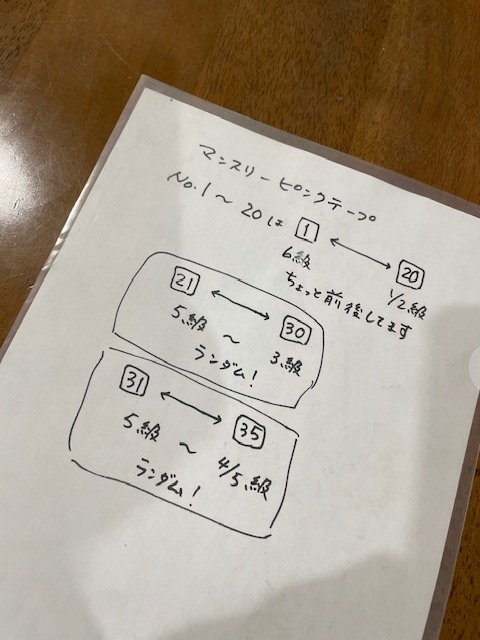 マンスリーピンクテープ
No.1〜20は 1 ←→ 20
6級 1/2級
ちょっと前後してます
21 ←→ 30
5級 〜 3級
ランダム!
31 ←→ 35
5級 〜 4/5級
ランダム!